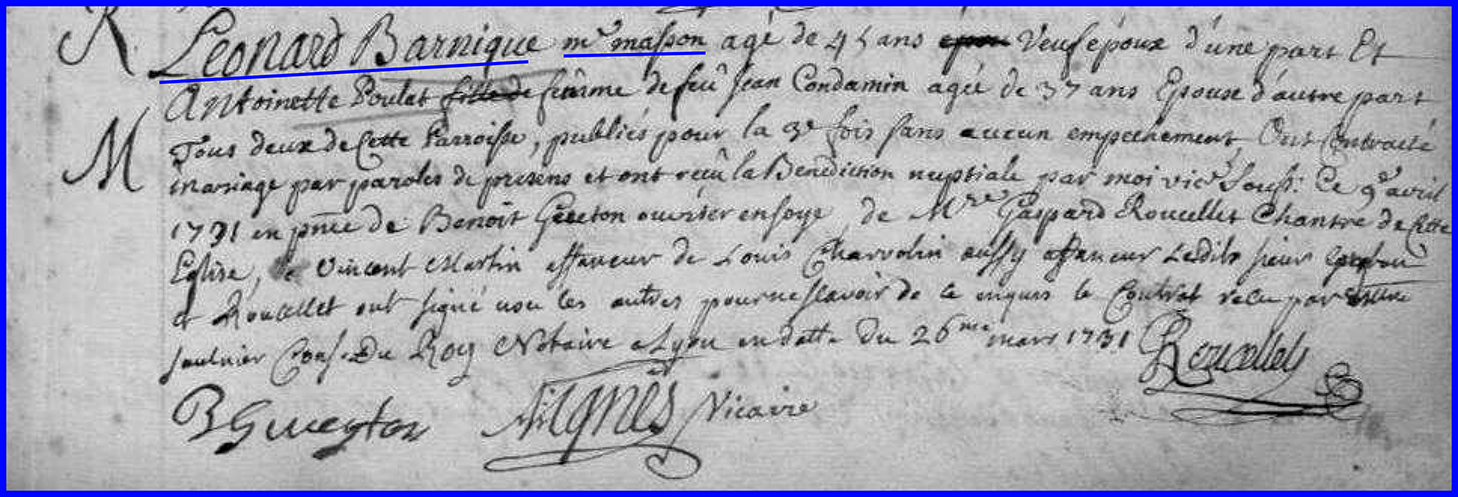 R Leonard Barnique mre masson agé de 45 ans epou Veuf époux d'une part Et
Antoinette Poulat fille de feme de feû Jean Condamin agée de 37 ans Epouse d'autre part
M Tous deux de Cette Parroisse, publiés pour la 3e fois sans aucun empechement, Ont Contracté
mariage par paroles de presens et ont reçû la Benediction nuptiale par moi vicre Souss: Ce 9e avril
1731 en pnce de Benoit ouvrier en soye, de Mre Gaspard Roucellet Chantre de Cette
Eglise, de Vincent Martin affaneur de Louis Charvolin aussy affaneur Lesdits sieur
et Roucellet ont signé non les autres pour ne sçavoir de ce enquis le Contrat recu par
saulnier Cons. Du Roy Notaire a Lyon en datte Du 26me mars 1731 Roucellet
B Vicaire